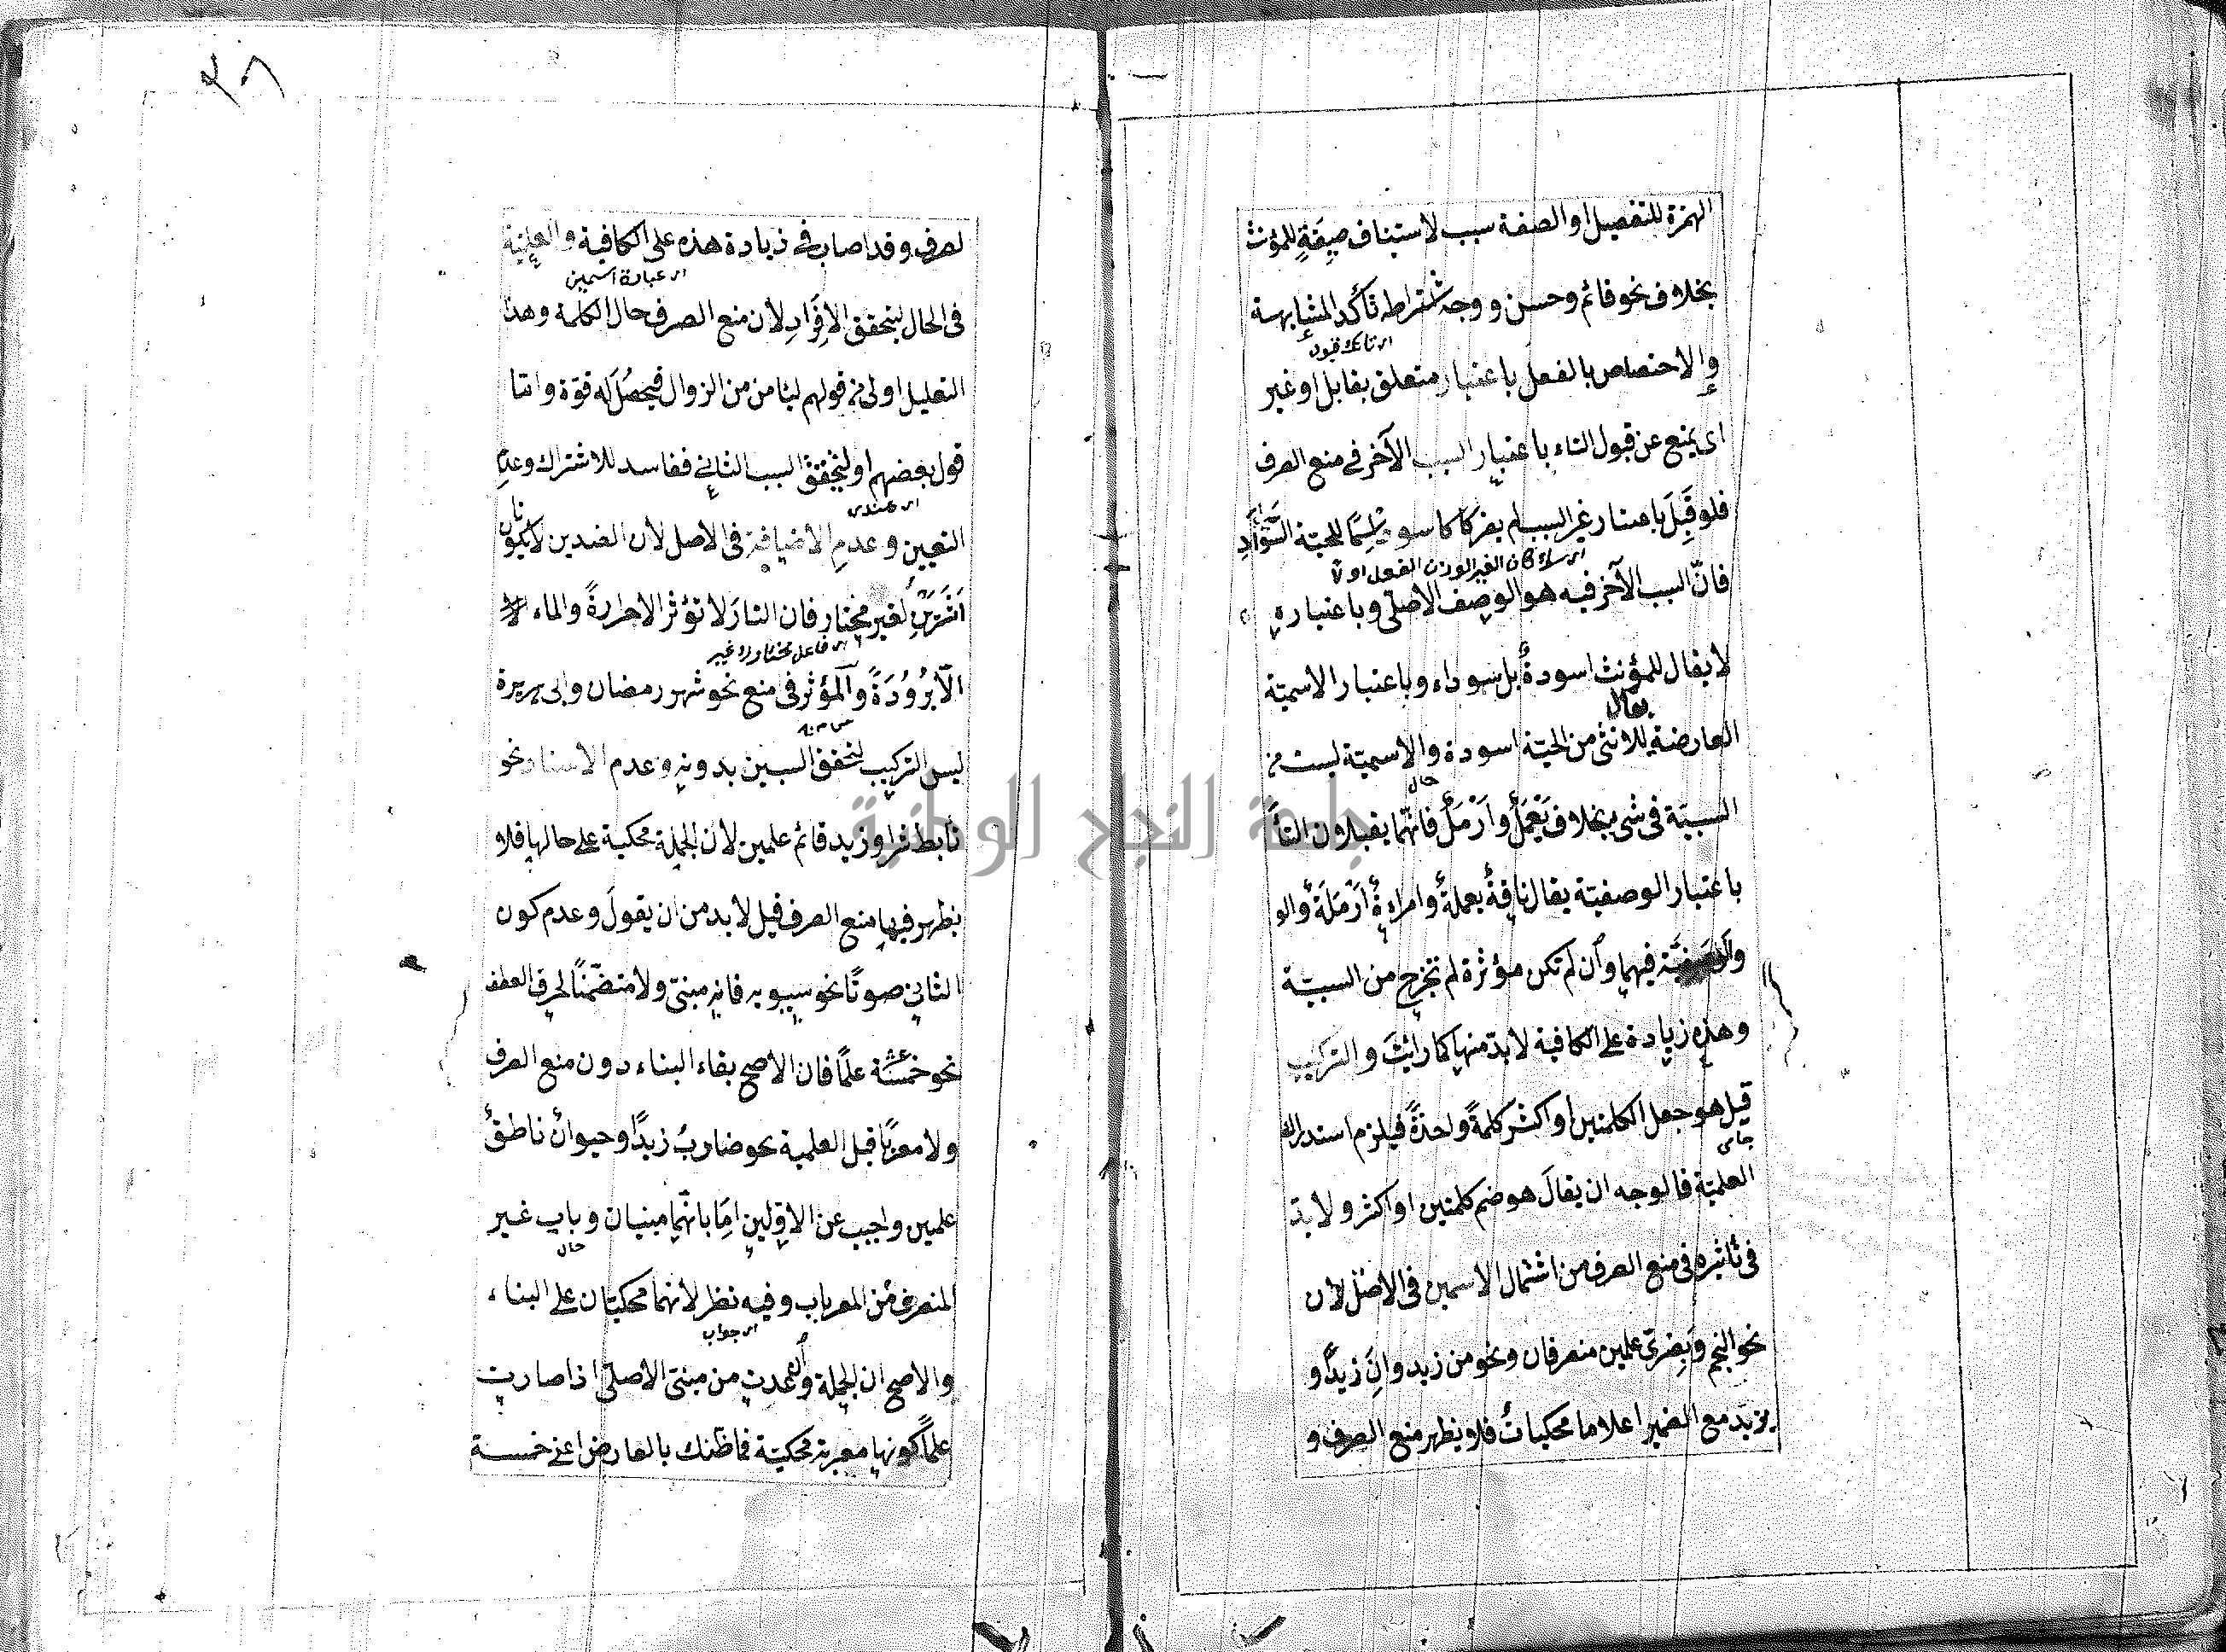 الهمزة للتفصيل او الصفة سبب لاستيناف صيغة للمؤنث
بخلاف نحو قائم وحسن ووجه اشتراطه تأكد المشابهة
والاختصاص بالفعل باعتبار متعلق بقابل او غير
اى يمنع عن قبول التاء باعتبار السبب الآخر فى منع الصرف
فلو قبل باعتبار غير السبب لم يضر كاسود اسمًا للحية السوداء
فانّ السبب الآخر فيه هو الوصف الاصلى وباعتباره
لا يقال للمؤنث اسودة بل سوداء وباعتبار الاسميّة
يقال
العارضة للانثى من الحيّة اسودة والاسميّة ليست من
حال
السببيّة فى شئ بخلاف يَعْمَل وأَرْمَل فانّهما يقبلان التاء
باعتبار الوصفيّة يقال ناقةٌ يعملةٌ وامراةٌ أَرْمَلَةٌ والو
والوصفيّة فيهما وان لم تكن مؤثرة لم تخرج من السببيّة
وهذه زيادة على الكافية لابدّ منها كما رايت والتركيب
قيل هو جعل الكلمتين أو اكثر كلمةً واحدةً فيلزم استدراك
العلميّة فالوجه ان يقالَ هو ضم كلمتين او اكثر ولابدّ
فى تأثيره فى منع الصرف من اشتمال الاسمين فى الاصل لأن
نحو النجم وبصرىّ علمين منصرفان ونحو من زيد وانَّ زيدًا و
يزيد مع الضمير اعلاما محكياتٌ فلا يظهر منع الصرف و
٢٨
لصرف وقد اصاب فى زيادة هذه على الكافية والعلمية
اى عبارة اسمين
فى الحال ليتحقق الافراد لأن منع الصرف حال الكلمة وهذا
التعليل اولى من قولهم ليئامن من الزوال فيحصُلَ له قوّة وامّا
قول بعضهم او ليتحقق السبب الثانى ففاسد للاشتراك وعدم
اى عندى
التعيين وعدم الاضافة فى الاصل لأن الضدين لا يكونان
أَثَرَيْنِ لغير مختار فان النارَ لا تؤثر الا حرارةً والماء لا
الّا بُرُودَةً والمؤثر فى منع نحو شهر رمضان وابى هريرة
ليس التركيب لتحقق السببين بدونه وعدم الاسناد ونحو
تابط شرا وزيد قائم علمين لأن الجملة محكية على حالها فلا
يظهر فيها منع الصرف قيل لابد من ان يقولَ وعدم كون
الثانى صوتًا نحو سيبويه فانه مبنىّ ولا متضمّنًا لحرف العطف
نحو خمسة عشر علمًا فان الاصح بقاء البناء دون منع الصرف
ولا معربًا قبل العلمية نحو ضاربٌ زيدًا وحيوانٌ ناطقٌ
علمين واجيب عن الاوّلين امّا بانّهما مبنيان وباب غير
حال
المنصرف من المعربات وفيه نظر لأنهما محكيّان على البناء
اى جواب
والاصح ان الجملة والعُمدت من مبنىّ الاصلىّ اذا صارت
علمًا كونها معربة محكيّة فما ظنك بالعارض اعنى خمسة
جامعة النجاح الوطنية